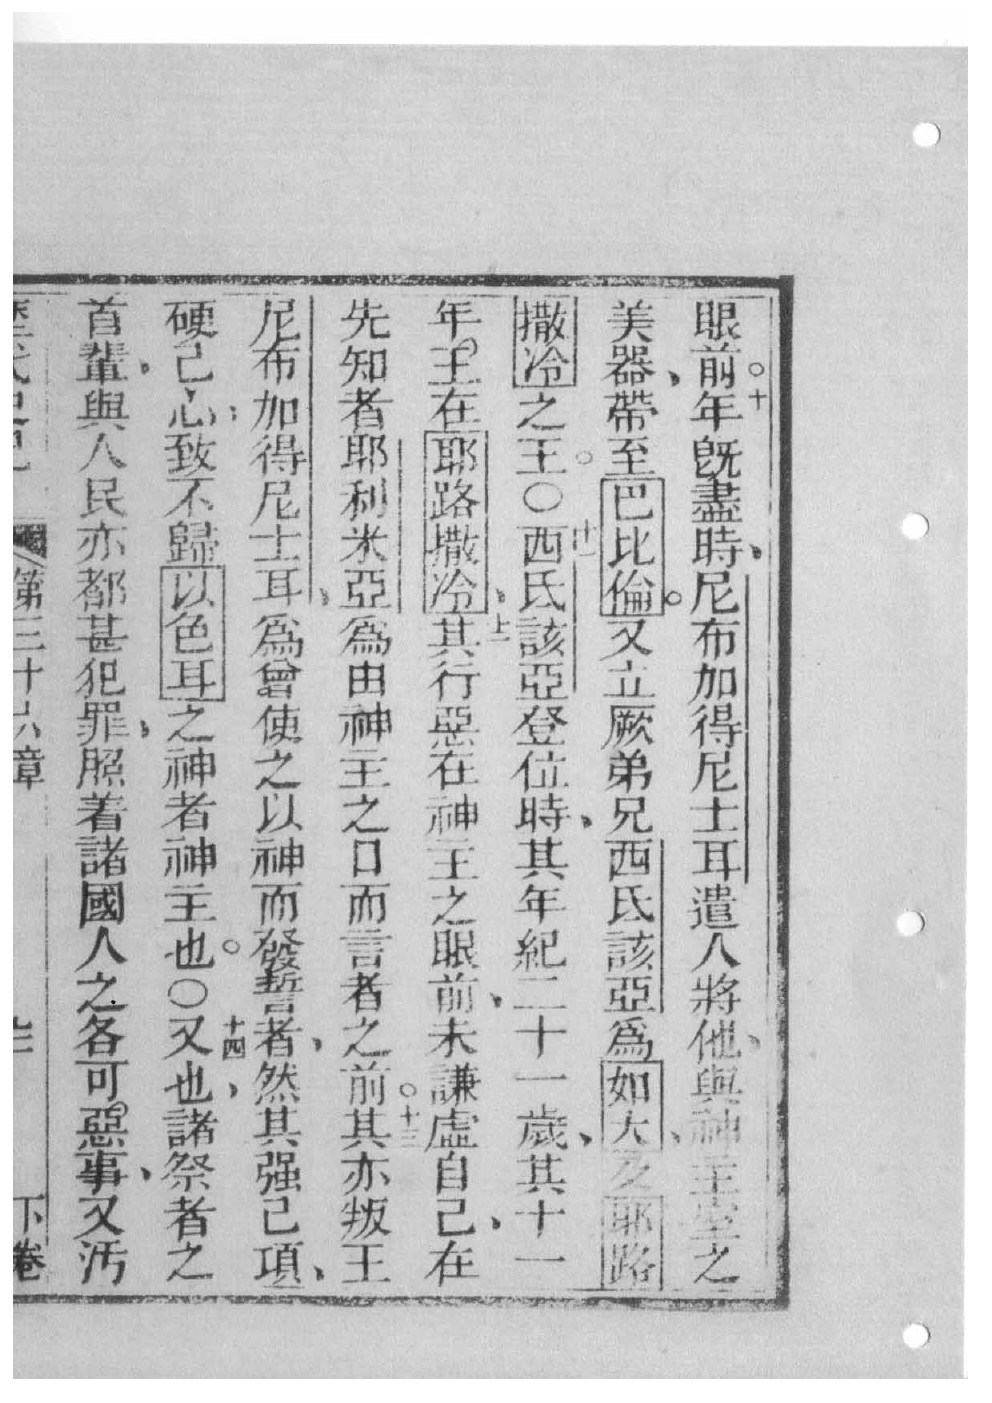 眼前。十年既盡時、尼布加得尼士耳遣人將他、與神主室之
美器、帶至巴比倫。又立厥弟兄西氏該亞爲如大、之耶路
撒冷之王。○十一西氏該亞登位時、其年紀二十一歲、其十一
年。王在耶路撒冷、十二其行惡在神主之眼前、未謙虛自己、在
先知者耶利米亞爲由神主之口而言者之前。十三其亦叛王
尼布加得尼士耳、爲曾使之以神而發誓者、然其强己項、
硬己心、致不歸以色耳之神者神主也。○十四又也、諸祭者之
首輩、與人民亦都甚犯罪、照着諸國人之各可惡。事、又汚
歷代史記 第三十六章 下卷